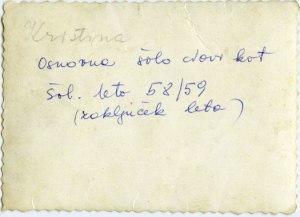 Kristina
Osnovna šola Novi kot
Šol. leto 58/59
(zaključek leta)